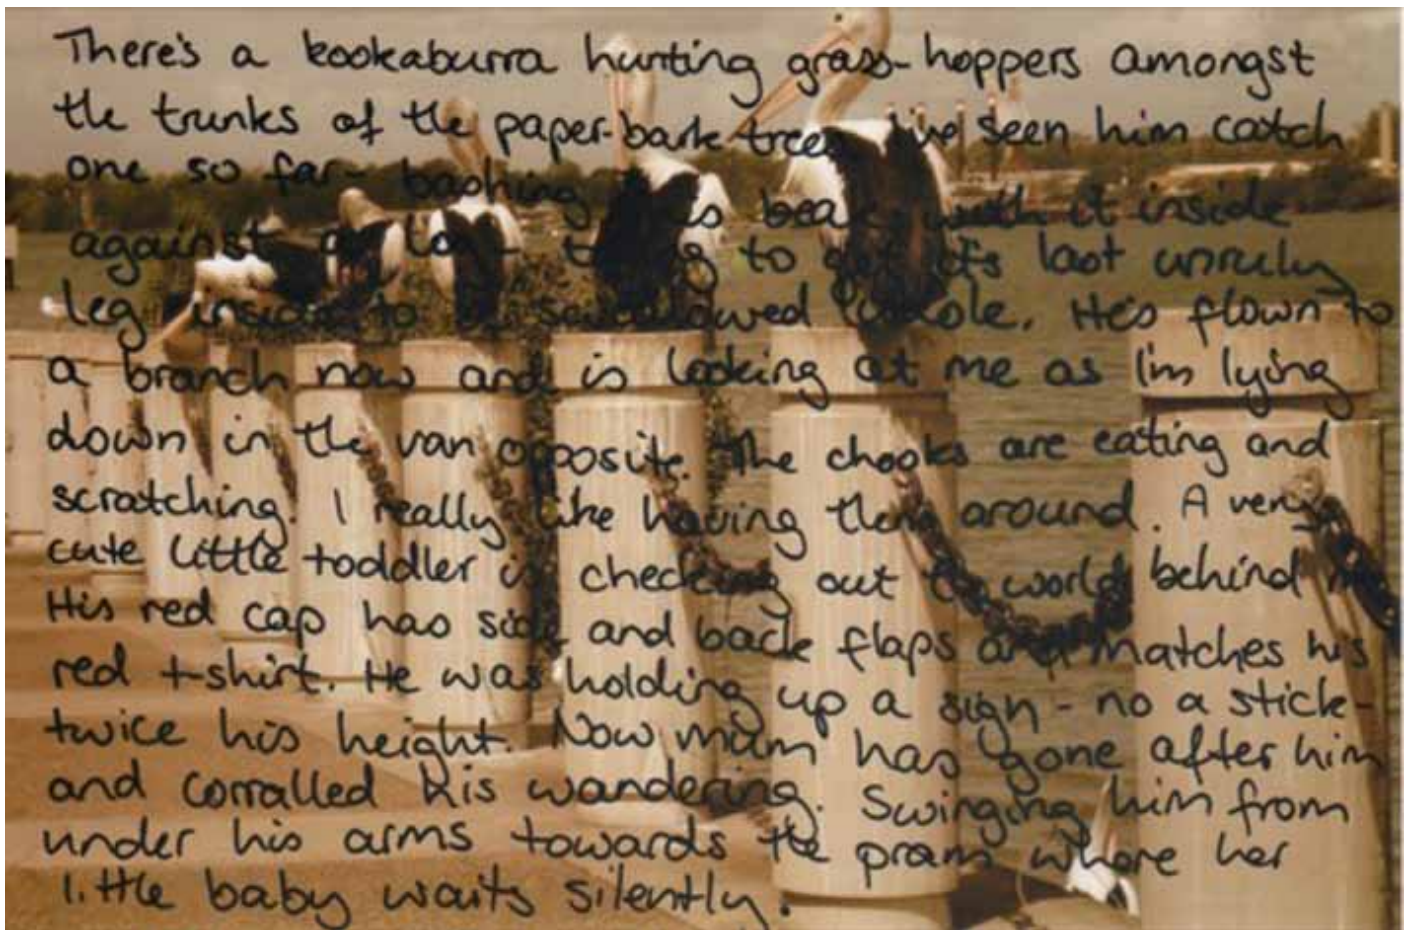 There's a kookaburra hunting grass-hoppers amongst
the trunks of the paper-bark trees. I've seen him catch
one so far - bashing his beak with it inside
against a log - trying to get its last unruly
leg inside to be swallowed whole. He's flown to
a branch now and is looking at me as I'm lying
down in the van opposite. The chooks are eating and
scratching. I really like having them around. A very
cute little toddler is checking out the world behind me
His red cap has side and back flaps and matches his
red t-shirt. He was holding up a sign - no a stick -
twice his height. Now mum has gone after him
and corralled his wandering. Swinging him from
under his arms towards the pram where her
little baby waits silently.